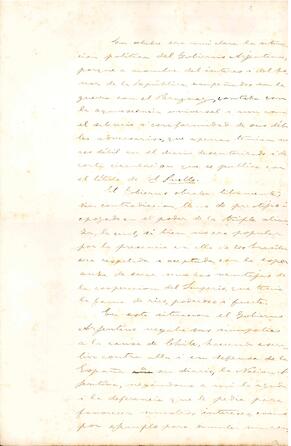 Con
política del Gobierno Argentino,
porque a nombre del interes i del ho-
nor de la República, empeñados en la
guerra con el Paraguay, contaba con
la aquiescencia universal
el silencio i conformidad de sus dibi-
les adversarios, que apenas tenian
en el diario
corta circulacion que se publica con
el título de El Pueblo.
El Gobierno obraba libremente,
sin contradiccion, lleno de prestijio i
apoyado en el poder de la triple alian-
za, la cual, si bien no era popular
por la presencia en ella de los brasileros
era respetada i aceptada con la espe-
ranza de sacar muchas ventajas de
la cooperacion del Imperio, que tenia
la fama de rico, poderoso i fuerte.
En esta situacion el Gobierno
Argentino negaba sus simpatías
a la causa de Chile, haciendo escri-
bir contra ella i en defensa de la
España su diario, la Nacion Ar-
jentina, negándome a mí la ayuda
i la deferencia que le pedia para
favorecer nuestros intereses, como
por ejemplo para